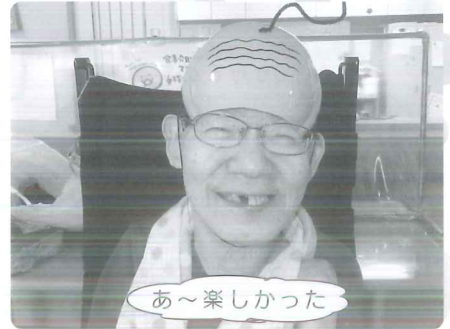 あ～楽しかった